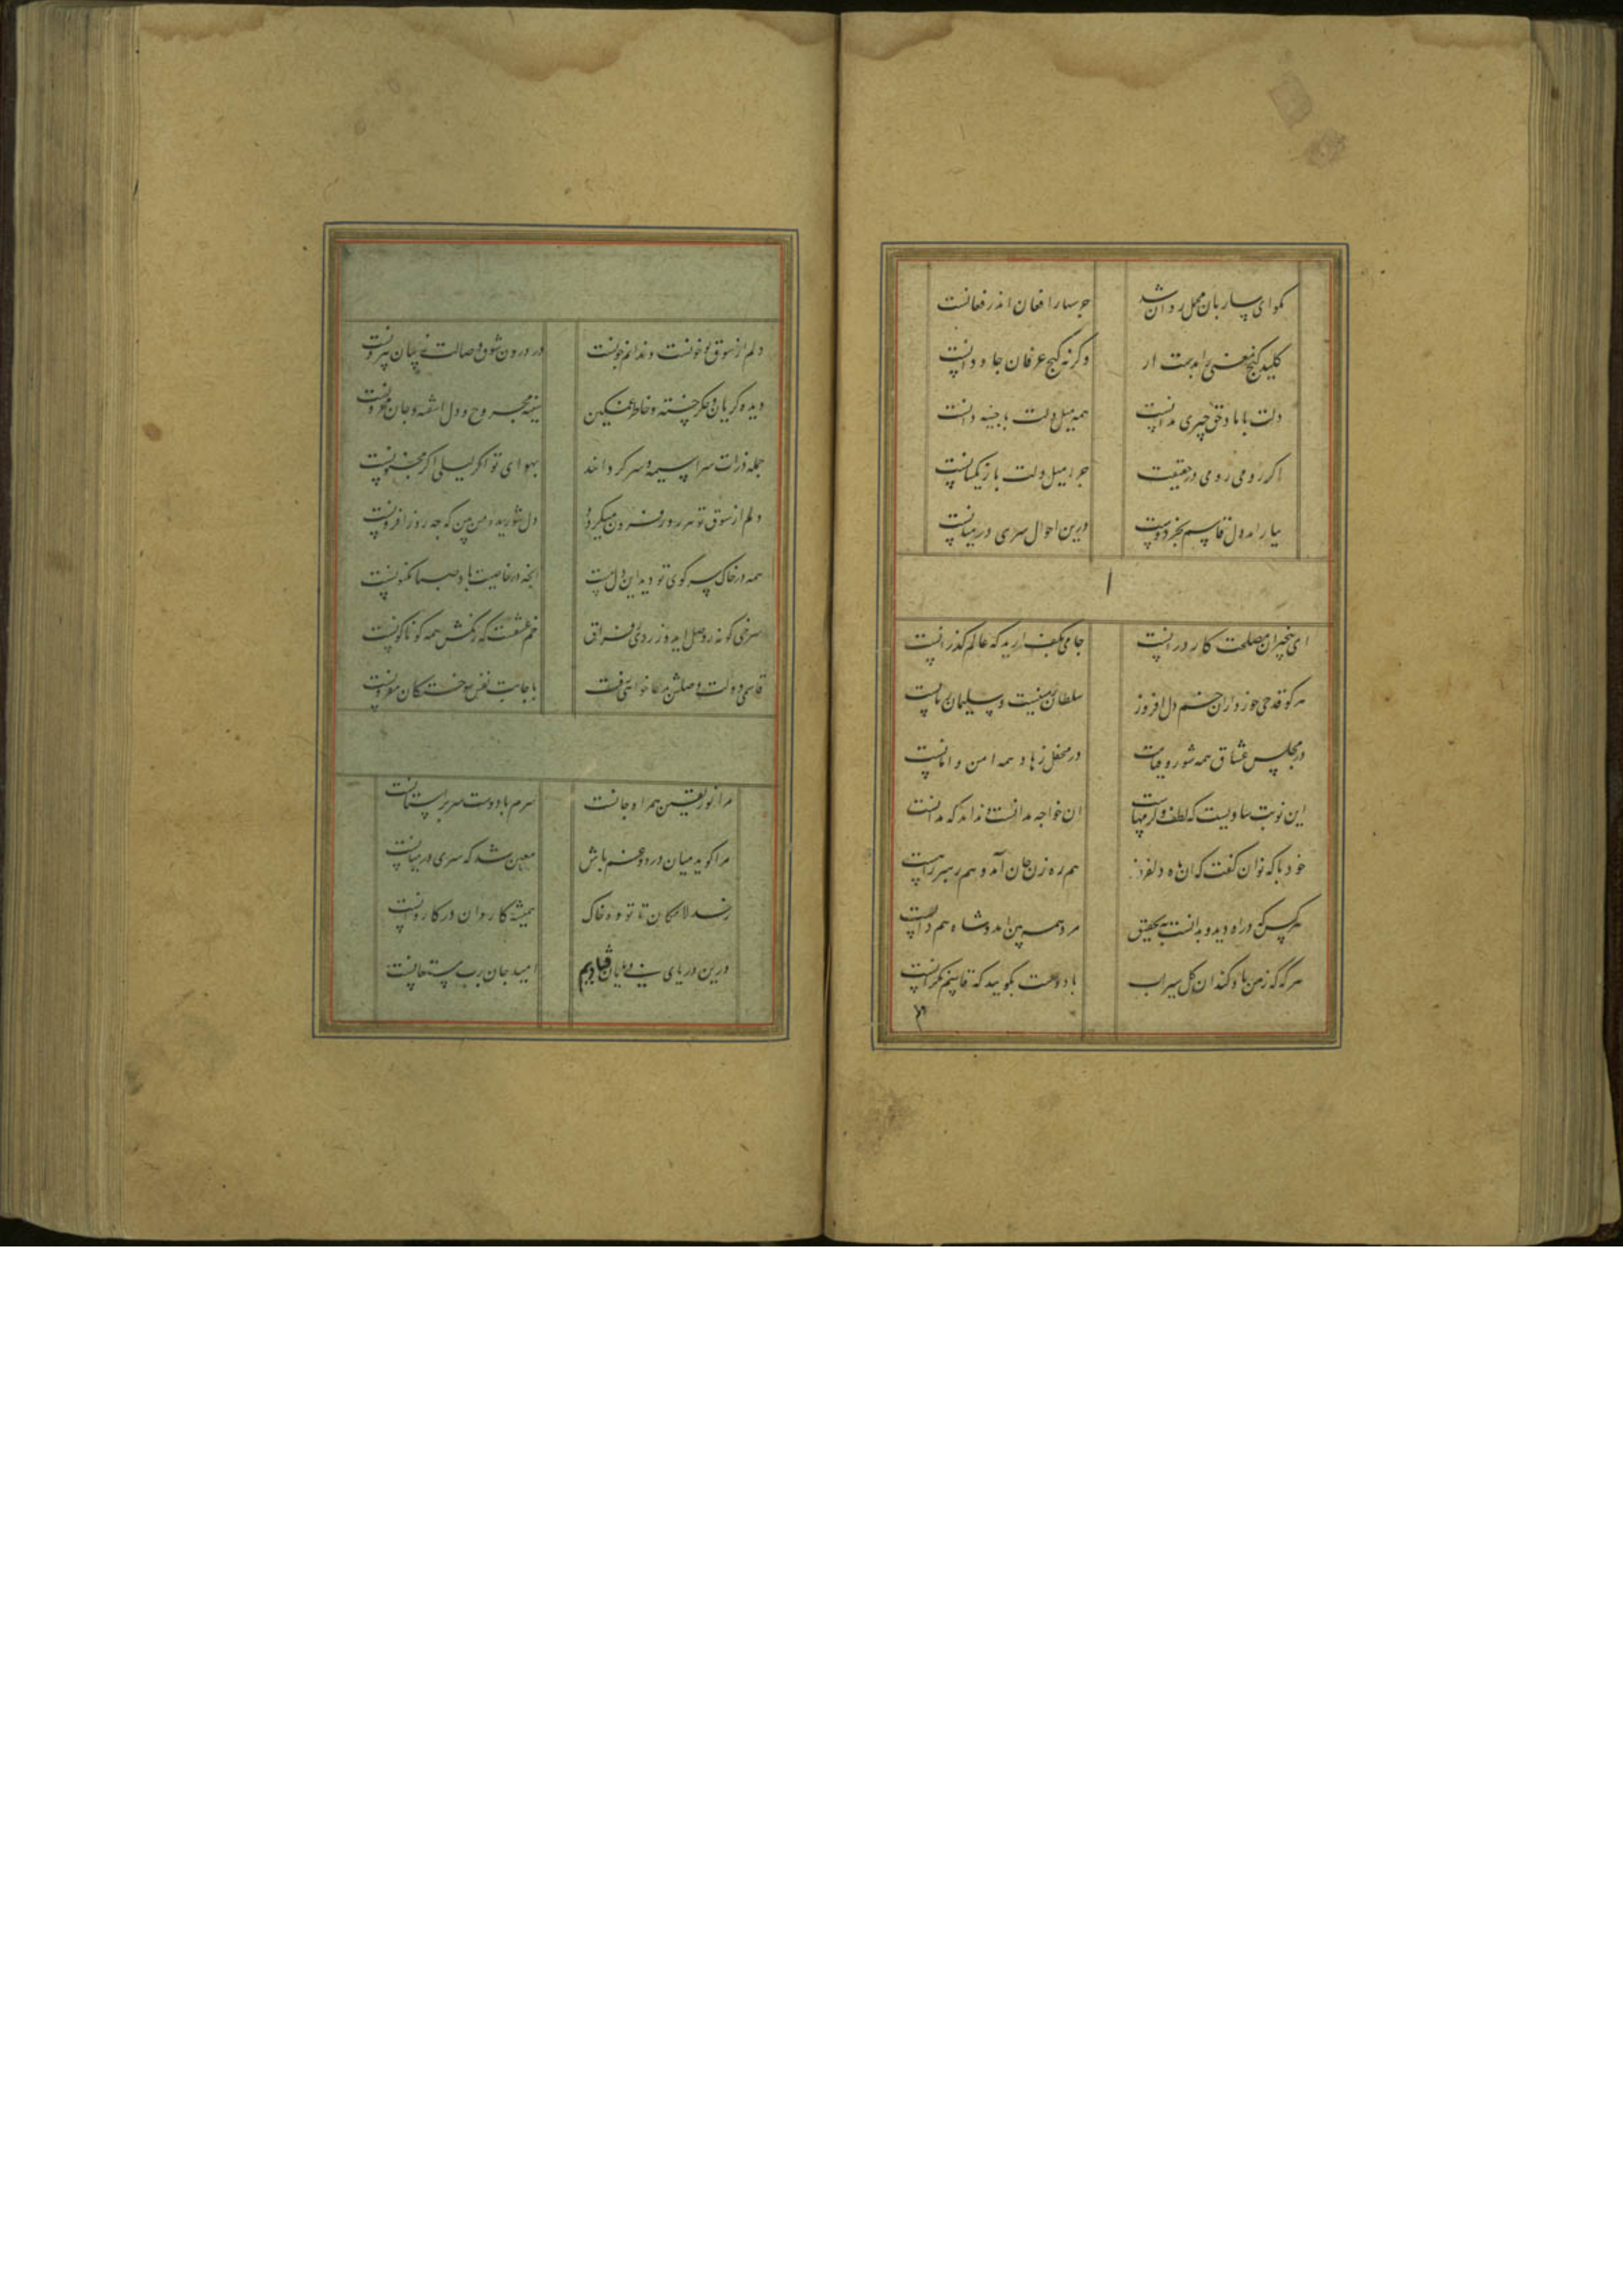 بکو ای ساربان محمل روان شد جرسها را فغان اندر فغانست
کلید کنج معنی را بدست ار وکرنه کنج عرفان جاودانست
دلت با ما دقیق چیزی ندانست همه میل دلت با جبه دانست
اکر رومی رومی در حقیقت جرا میل دلت با زیکسانست
بیا رامد دل قاسم بخر دوست درین احوال سری در میانست
ای بیخبران مصلحت کار در انست جامی بکف ارید که عالم کذرانست
هرکو قدحی خورد ازان خم دل افروز سلطان زمینست و سلیمان زمانست
در مجلس عشاق همه شور و قیامت در محفل زهاد همه امن و امانست
این نوبت ساقیست که لطف و کرمهاست ان خواجه ندانست و نداند که ندانست
خود با که توان کفت که ان ماه دلفروز هم ره زن جان آمد و هم رهبر جانست
هرکس که درین راه دید و بدانست بتحقیق مرد همه بین امد و شاه همه دانست
هرکه که ز من یاد کند ان کل سیراب با دوست بکویید که قاسم نکرانست
دلم از شوق تو خونست و ندانم چونست در درون شوق وصالت ز بیان بیرونست
دیده کریان و جکر خسته و خاطر غمکین سینه مجروح و دل اشفته و جان محزونست
جمله ذرات سراسیمه و سرکردانند بهوای تو اکر لیلی اکر مجنونست
دلم از شوق تو هر روز فزون میکردد دل شوریده من بین که چه روز افزونست
همه در خاک سر کوی تو دید این دل مست انچه در خاصیت باد صبا مکنونست
سرخی کونه ز وصل امد و زردی ز فراق خم عشقست که رنکش همه کوناکونست
قاسمی دولت وصلش بدعا خواهی یافت باجابت نفس سوختکان مقرونست
مرا نور یقین همراه جانست سرم با دوست سر بر استانست
مرا کوید میان درد و غم باش معین شد که سری در میانست
رسد لامکان تا توده خاک همیشه کاروان در کاروانست
درین دریای بی پایان فتادیم امید جان برب مستعانست